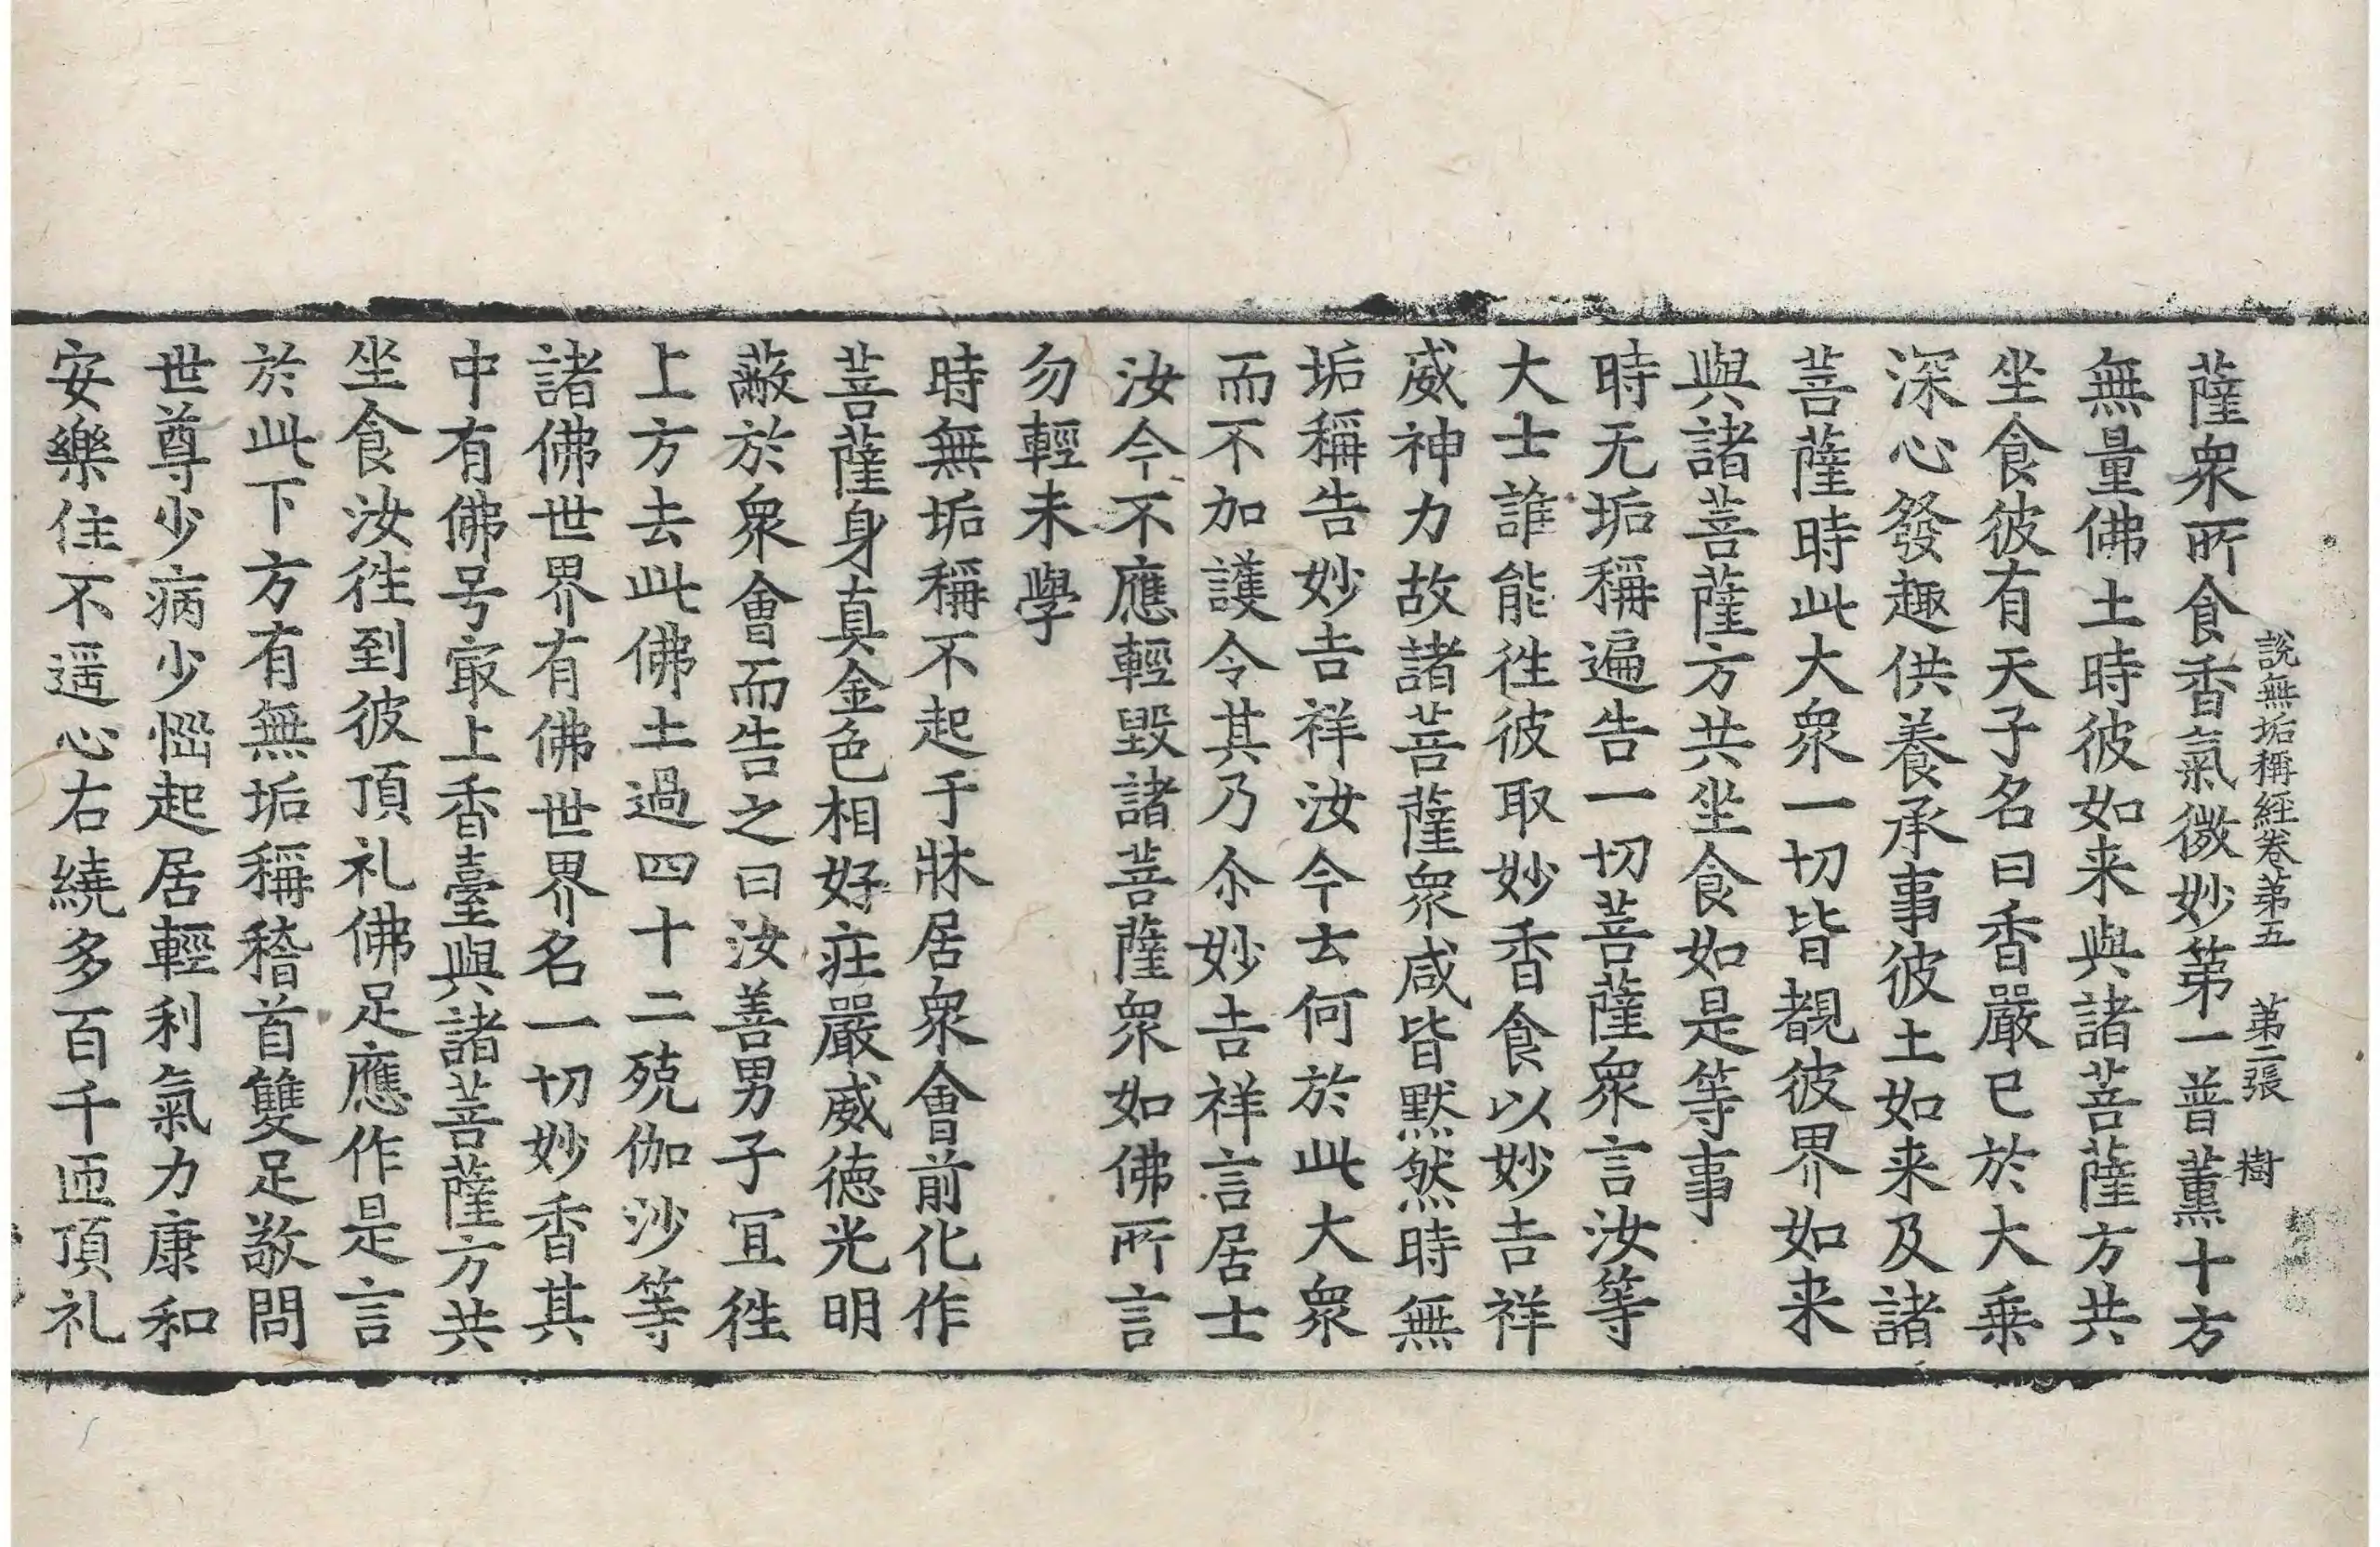 說無垢稱經卷第五 第二張 樹
薩衆所食香氣微妙第一普薰十方
無量佛土時彼如来與諸菩薩方共
坐食彼有天子名曰香嚴已於大乗
深心發趣供養承事彼土如来及諸
菩薩時此大衆一切皆覩彼界如来
與諸菩薩方共坐食如是等事
時无垢稱遍告一切菩薩衆言汝等
大士誰能往彼取妙香食以妙吉祥
威神力故諸菩薩衆咸皆默然時無
垢稱告妙吉祥汝今云何於此大衆
而不加護令其乃尒妙吉祥言居士
汝今不應輕毀諸菩薩衆如佛所言
勿輕未學
時無垢稱不起于牀居衆會前化作
菩薩身真金色相好莊嚴威徳光明
蔽於衆會而告之曰汝善男子冝往
上方去此佛土過四十二殑伽沙等
諸佛世界有佛世界名一切妙香其
中有佛号㝡上香臺與諸菩薩方共
坐食汝往到彼頂礼佛足應作是言
於此下方有無垢稱稽首雙足敬問
世尊少病少惱起居輕利氣力康和
安樂住不遥心右繞多百千匝頂礼